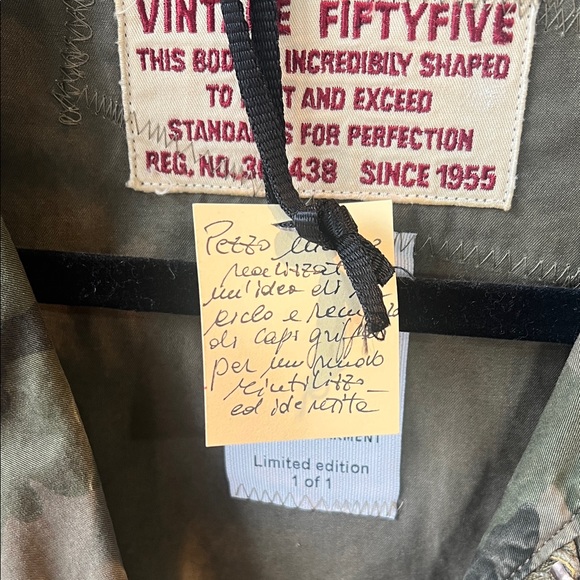 VINTAGE FIFTYFIVE
THIS BODY INCREDIBLY SHAPED
TO AND EXCEED
STANDARDS FOR PERFECTION
REG. NO. 438 SINCE 1955
Pezzo
realizzato
un'idea di
ciclo e
di capi
per un nuovo
riutilizzo
ed identità
Limited edition
1 of 1